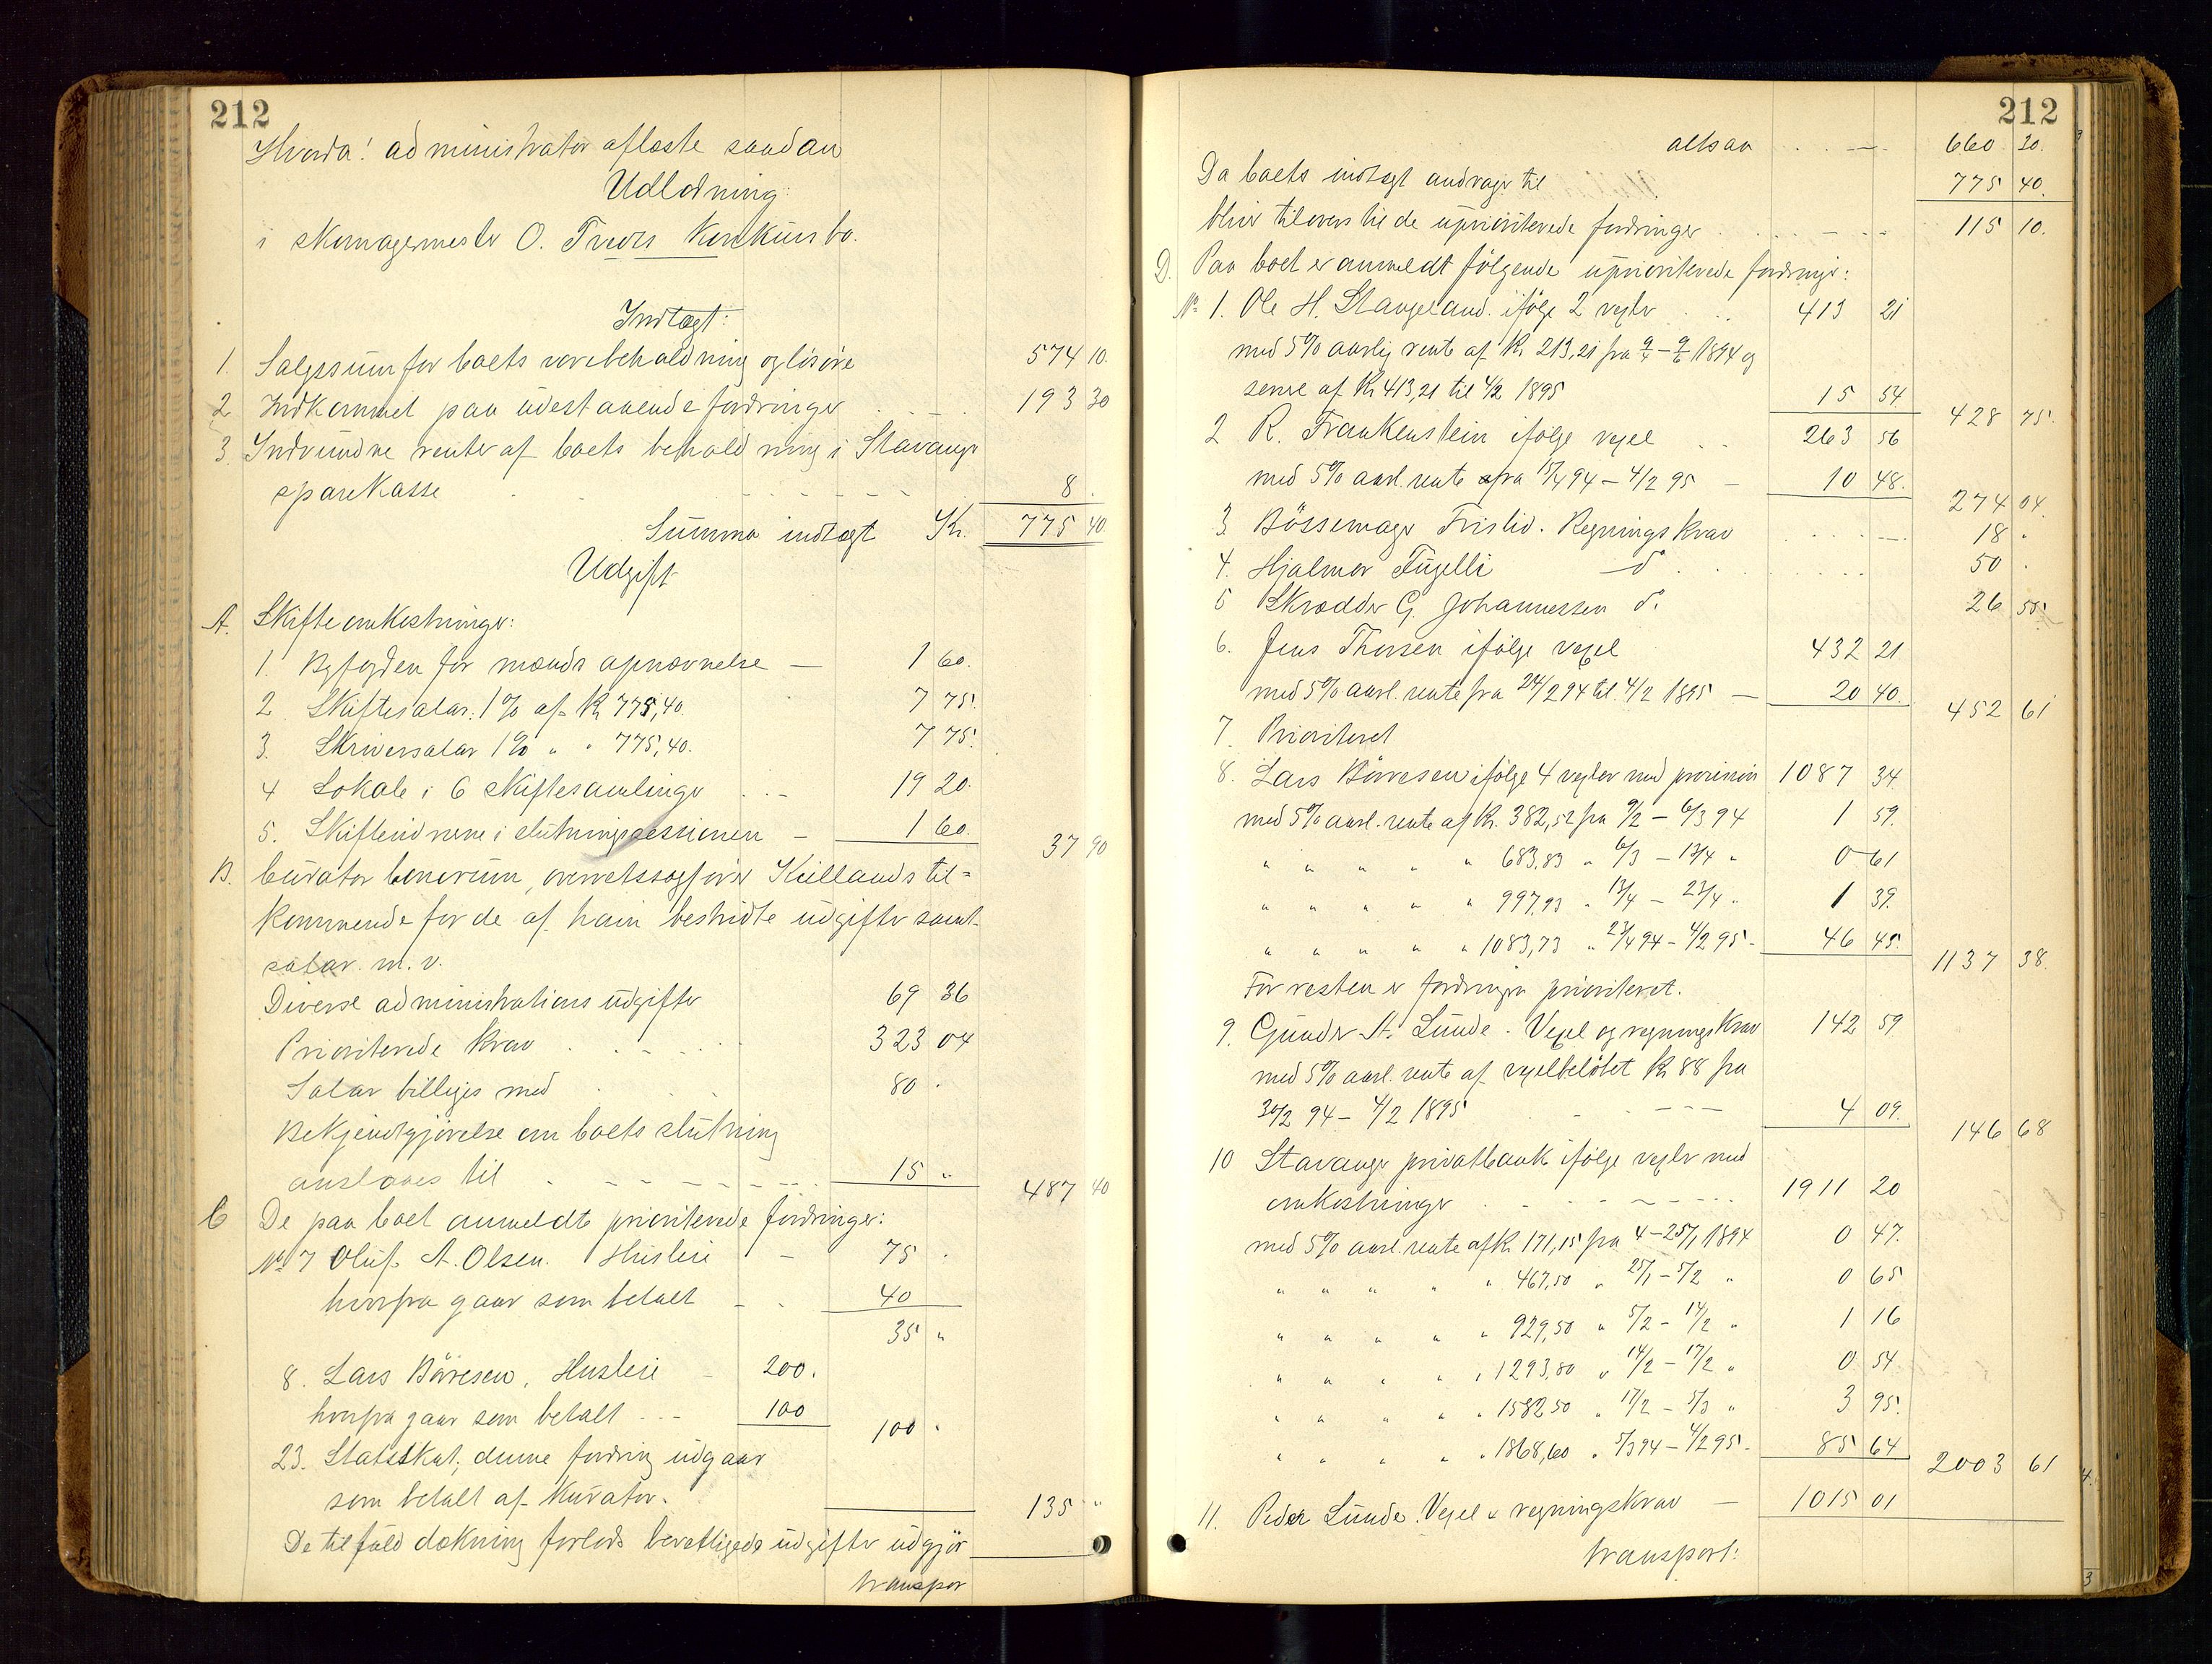 212
Hvorda! administrator afleste saadan
Udlodning:
i skomagermester O. Tveds Konkursbo.
Indtægt:
1. Salgssum for boets varebeholdning og lösöre 574 10.
2 Indkommet paa udestaaende fordringer 193 30
3. Indvundne renter af boets beholdning i Stavanger
sparekasse 8.
Summa indtægt Kr. 775 40
Udgift
A. Skifteomkostninger:
1. Byfogden for mænds opnævnelse — 1 60.
2 Skiftesalar: 1% af Kr 775,40. 7 75.
3. Skriversalar 1% " " 775,40. 7 75.
4 Lokale i 6 skiftesamlinger 19 20.
5. Skiftevidnerne i slutningssessionen — 1 60. 37 90
B. Curator bonorum, overretssagförer Kiellands til-
kommende for de af ham bestridte udgifter samt
salar. m. v.
Diverse administrations udgifter 69 36
Prioriterede krav 323 04
Salar billiges med 80 .
Bekjendtgjörelse om boets slutning
anslaaes til 15 " 487 40
C De paa boet anmeldte prioriterede fordringer:
No 7 Oluf A. Olsen. Husleie — 75 .
hvorfra gaar som betalt 40
35 "
8. Lars Börresen, Husleie 200.
hvorfra gaar som betalt 100 100 "
23. Statsskat; denne fordring udgaar
som betalt af Kurator. 135 "
De til fuld dækning forlods berettigede udgifter udgjör
transpor
212
altsaa 660 30.
Da boets indtægt andrager til 775 40.
bliver tilovers til de uprioriterede fordringer 115 10.
D. Paa boet er anmeldt følgende uprioriterede fordringer:
No 1. Ole H. Stangeland. ifölge 2 vexler 413 21
med 5% aarlig rente af Kr 213,21 fra 9/4 - 9/6 1894 og
senere af Kr 413,21 til 4/2 1895 15 54. 428 75.
2 R. Frankenstein ifölge vexel 263 56
med 5% aarl. rente fra 15/4 94 - 4/2 95 — 10 48. 274 04.
3. Bössemager Tristid. Regningskrav 18 .
4. Hjalmar Fugelli do 50 .
5 Skrædder G. Johannessen do 26 55.
6. Jens Thorsen ifölge vexel 432 21
med 5% aarl. rente fra 24/2 94 til 4/2 1895 — 20 40. 452 61
7. Prioriteret
8. Lars Börresen ifölge 4 vexler med provision 1087 34.
med 5% aarl. rente af Kr. 382,52 fra 9/2 - 6/3 94 1 59.
" " " " " 683,83 " 6/3 - 13/4 " 0 61
" " " " " 997,93 " 13/4 - 23/4 " 1 39.
" " " " " 1083,73 " 23/4 94 - 4/2 95 - 46 45. 1137 38.
For resten er fordringen prioriteret.
9. Gunder A. Lunde. Vexel og regningskrav 142 59.
med 5% aarl. rente af vexelbelöbet Kr 88 fra
30/2 94 - 4/2 1895 4 09. 146 68
10 Stavanger privatbank ifölge vexler med
omkostninger 1911 20
med 5% aarl. rente af Kr. 171,15 fra 4-25/1 1894 0 47.
" " " " " 467,50 " 25/1 - 5/2 " 0 65
" " " " " 929,50 " 5/2 - 14/2 " 1 16
" " " " " 1293,80 " 14/2 - 17/2 " 0 54.
" " " " " 1582 50 " 17/2 - 5/3 " 3 95.
" " " " " 1868,60 " 5/3 94 - 4/2 95 - 85 64 2003 61
11. Peder Lunde. Vexel & regningskrav — 1015 01
transport: